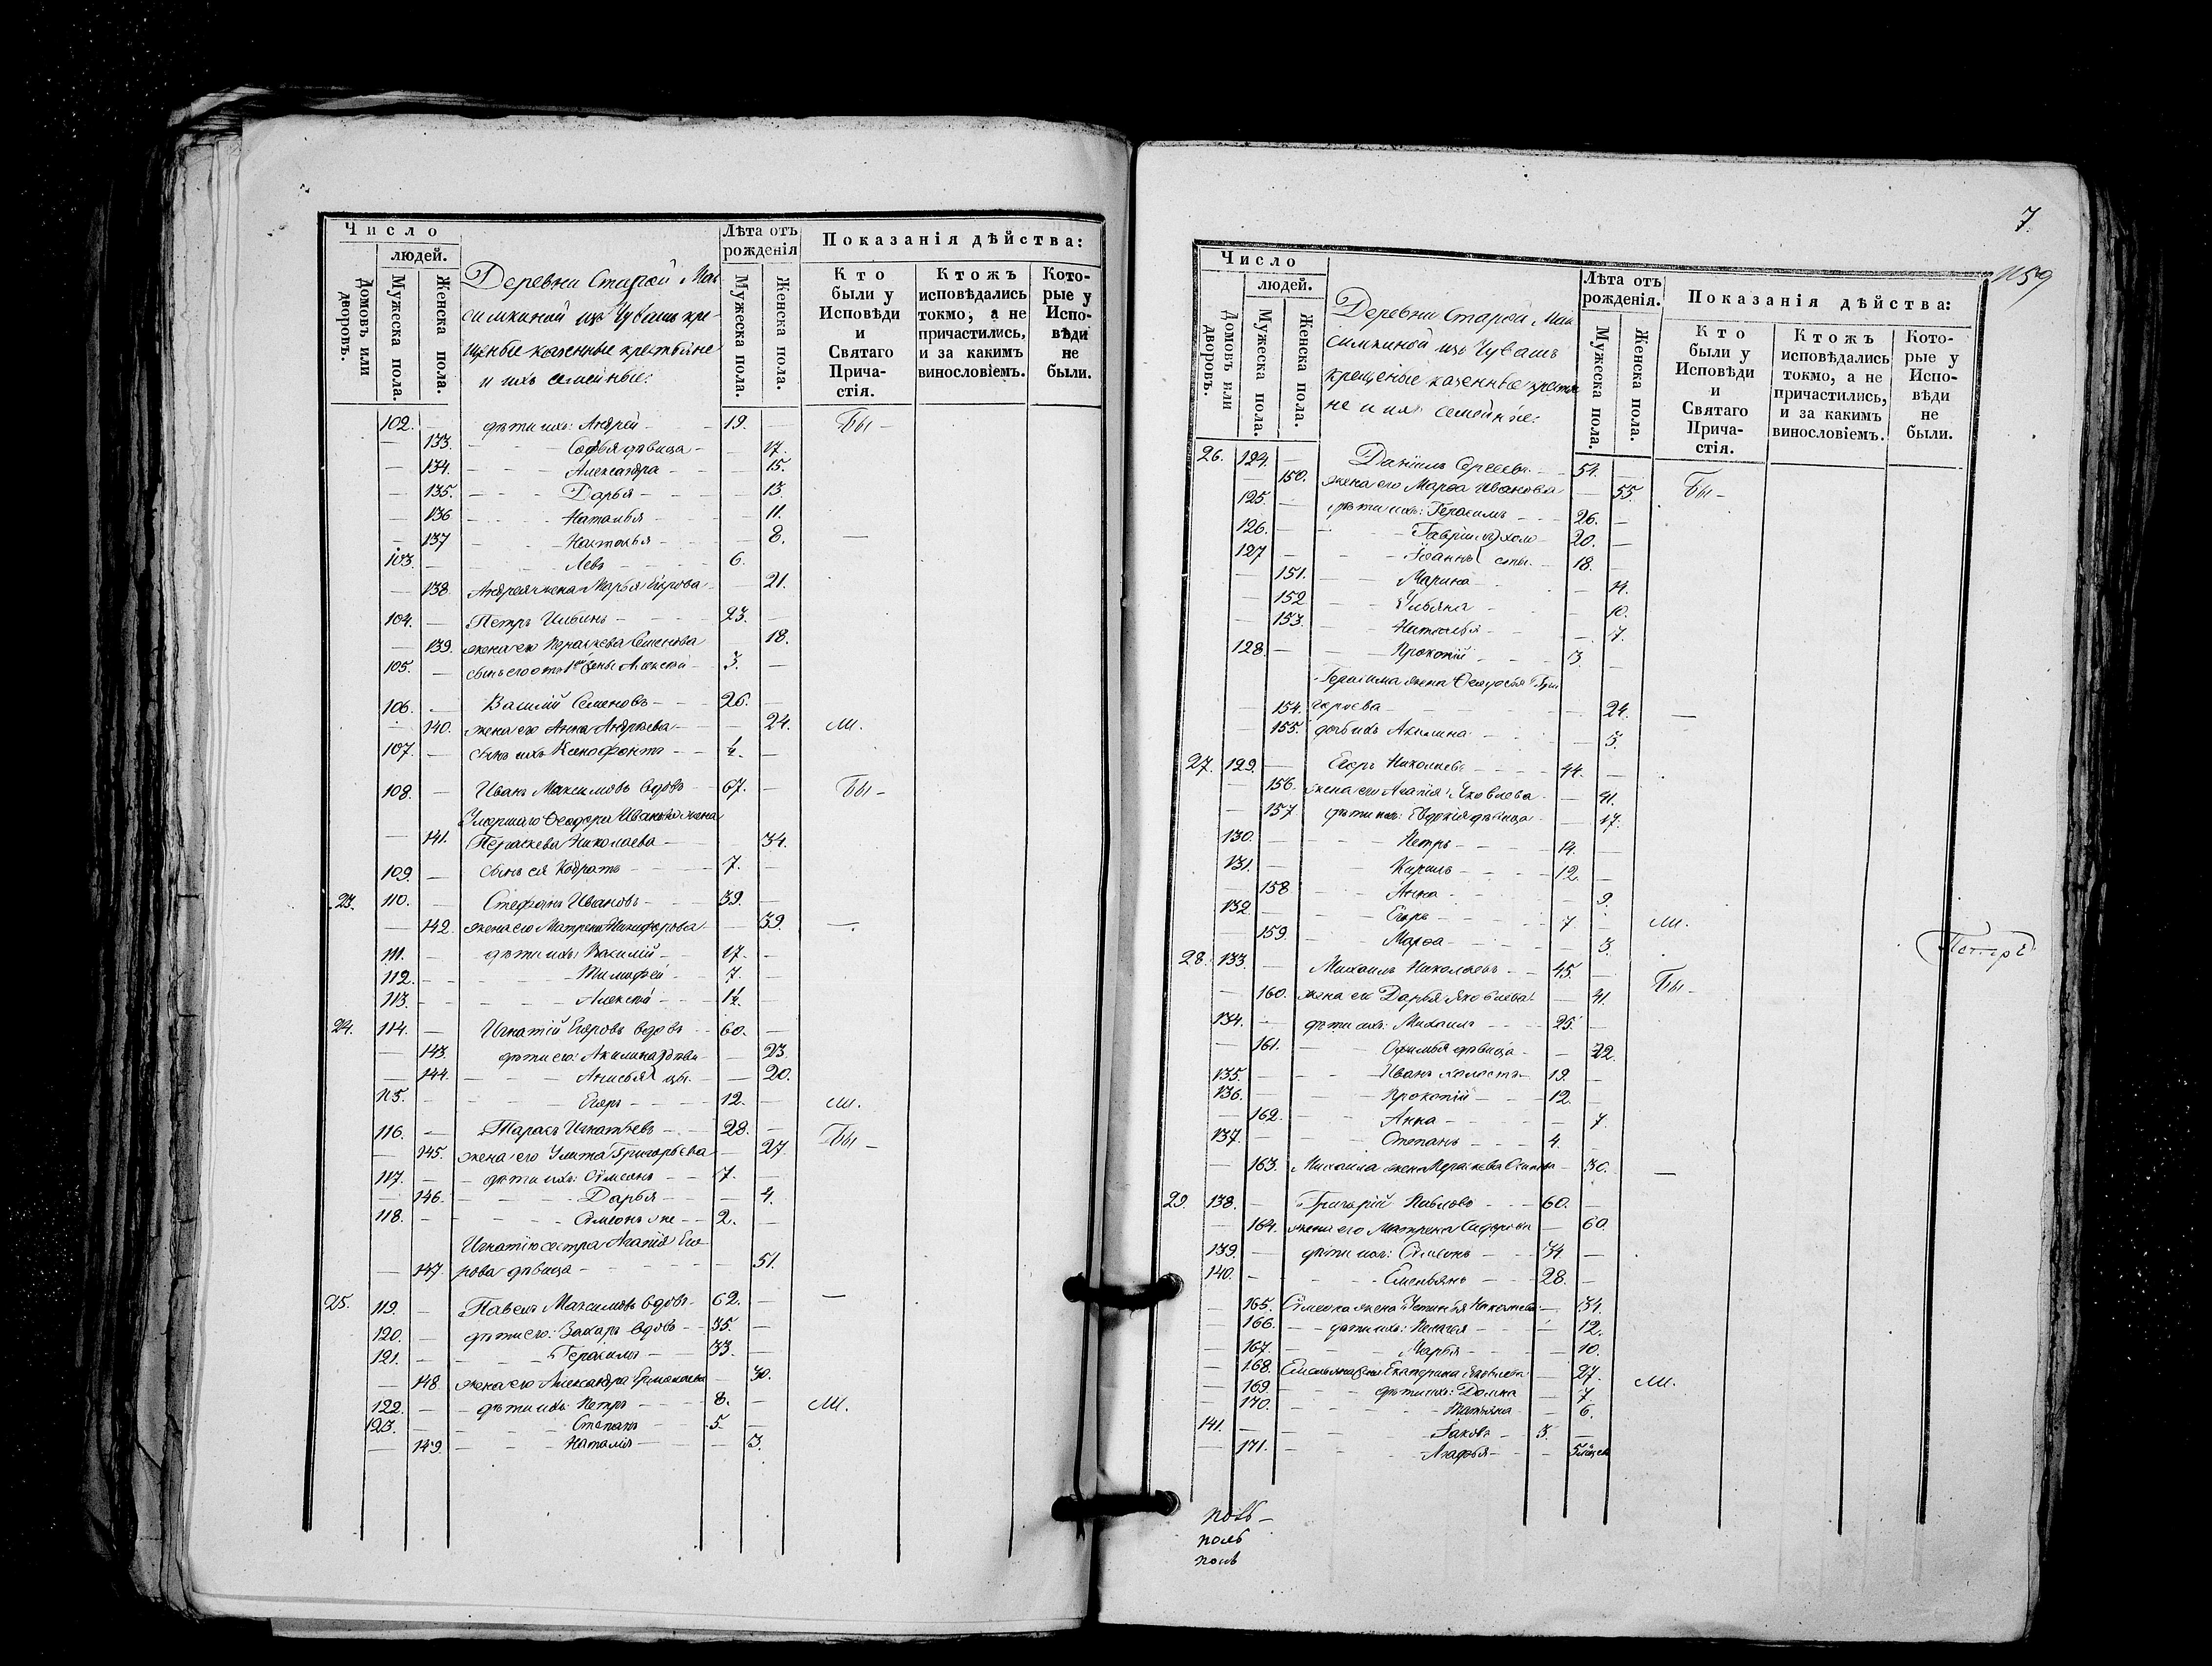 Число
людей.
Домовъ или дворовъ.
Мужеска пола.
Женска пола.
Деревни Старой Мак
симкиной изъ Чувашъ кре-
щеные казенные крестьяне
и ихъ семейные:
Лѣта отъ рожденія
Мужеска пола.
Женска пола.
Показанія дѣйства:
Кто были у Исповѣди и Святаго Причастія.
Ктожъ исповѣдались токмо, а не причастились, и за какимъ винословіемъ.
Которые у Исповѣди не были.
102. — дѣти ихъ: Андрей — 19. — Бы —
— 133. — Софья дѣвица — — 17.
— 134. — Александра — — 15.
— 135. — Дарья — — 13
— 136 — Наталья — — 11.
— 137 — Настасья — — 8. —
103. — Левъ — 6.
— 138. Андрея жена Марья — 21.
104. — Петръ Ильинъ — 23. —
— 139. жена его Параскева Семенова 18.
105. — сынъ его отъ 1ой жены Алексѣй — 3. —
106. — Василій Семеновъ — 26. —
— 140. жена его Анна Андреева — 24. М.
107. — сынъ ихъ Ксенофонтъ — ½. —
108. — Иванъ Максимовъ вдовъ — 67. — Бы —
Умершаго Ѳеодора Иванова жена
— 141. Параскева Николаева — 34.
109. — сынъ ея Кодратъ — 7. —
23. 110. — Стефанъ Ивановъ — 39. —
— 142. жена его Матрена Никифорова — 39. —
111. — дѣти ихъ: Василій — 17. —
112. — Тимофей — 7. —
113. — Алексѣй — 1½. —
24. 114. — Игнатій Егоровъ вдовъ — 60. —
— 143. дѣти его: Акилина дѣви — 23.
— 144. — Анисья цы. — 20.
115. — Егоръ — 12. — М.
116. — Тарасъ Игнатьевъ — 28. — Бы —
— 145. жена его Улита Григорьева — 27.
117. — дѣти ихъ: Сѵмеонъ — 7. —
— 146. — Дарья — — 4.
118. — Сѵмеонъ же — 2. —
Игнатію сестра Агапія Его-
— 147. рова дѣвица — — 51.
25. 119. — Павелъ Максимовъ вдовъ — 62. — —
120. — дѣти его: Захаръ вдовъ — 35. —
121. — Герасимъ — 33. —
— 148. жена его Александра Ермолаева — 30.
122. — дѣти ихъ: Петръ — 8. — М.
123. — Степанъ — 5. —
— 149. — Наталія — — 3.
7.
1159
Число
людей.
Домовъ или дворовъ.
Мужеска пола.
Женска пола.
Деревни Старой Мак
симкиной изъ Чувашъ
крещеные казенные крестья
не и ихъ семейные:
Лѣта отъ рожденія.
Мужеска пола.
Женска пола.
Показанія дѣйства:
Кто были у Исповѣди и Святаго Причастія.
Ктожъ исповѣдались токмо, а не причастились, и за какимъ винословіемъ.
Которые у Исповѣди не были.
26. 124. — Даніилъ Сергеевъ — 54. —
— 150. жена его Марѳа Иванова — 55. Бы —
125. — дѣти ихъ: Герасимъ — 26. —
126. — Гавріилъ холо — 20. —
127 — Іоаннъ сты. — 18. —
— 151. — Марина — — 14.
— 152 — Ульяна — — 10.
— 153. — Наталья — — 7.
128. — Прокопій — 3. —
Герасима жена Ѳедосья Гри
— 154. горьева — 24. —
— 155. дочь ихъ Акилина — 3.
27. 129. — Егоръ Николаевъ — 44. —
— 156. жена его Агапія Яковлева — 41.
— 157 дѣти ихъ: Евдокія дѣвица — 17.
130. — Петръ — 14. —
131. — Кирилъ — 12. —
— 158 — Анна — — 9.
132. — Егоръ — 7. — М.
— 159. — Марѳа — — 3.
28. 133. — Михаилъ Николаевъ — 45. — Бы —
— 160. жена его Дарья Яковлева — 41.
134. — дѣти ихъ: Михаилъ — 25. —
— 161. — Офимья дѣвица — — 22.
135. — Иванъ холостъ — 19. —
136. — Прокопій — 12. —
— 162. — Анна — — 7.
137. — Степанъ — 4. —
— 163. Михаила жена Параскева Осипова — 30. —
29. 138. — Григорій Павловъ — 60. —
— 164. жена его Матрена Сидорова — 60.
139. — дѣти ихъ: Сѵмеонъ — 34. —
140. — Емельянъ — 28. —
— 165. Сѵмеона жена Устинья Николаева — 34.
— 166. — дѣти ихъ: Пелагея — 12.
— 167. — Марья — — 10.
— 168. Емельяна жена Екатерина — 27. М.
— 169. дѣти ихъ: Домна — 7.
— 170. — Татьяна — 6.
141. — Іаковъ — 3. —
— 171. — Агафья — — 5 мѣсец